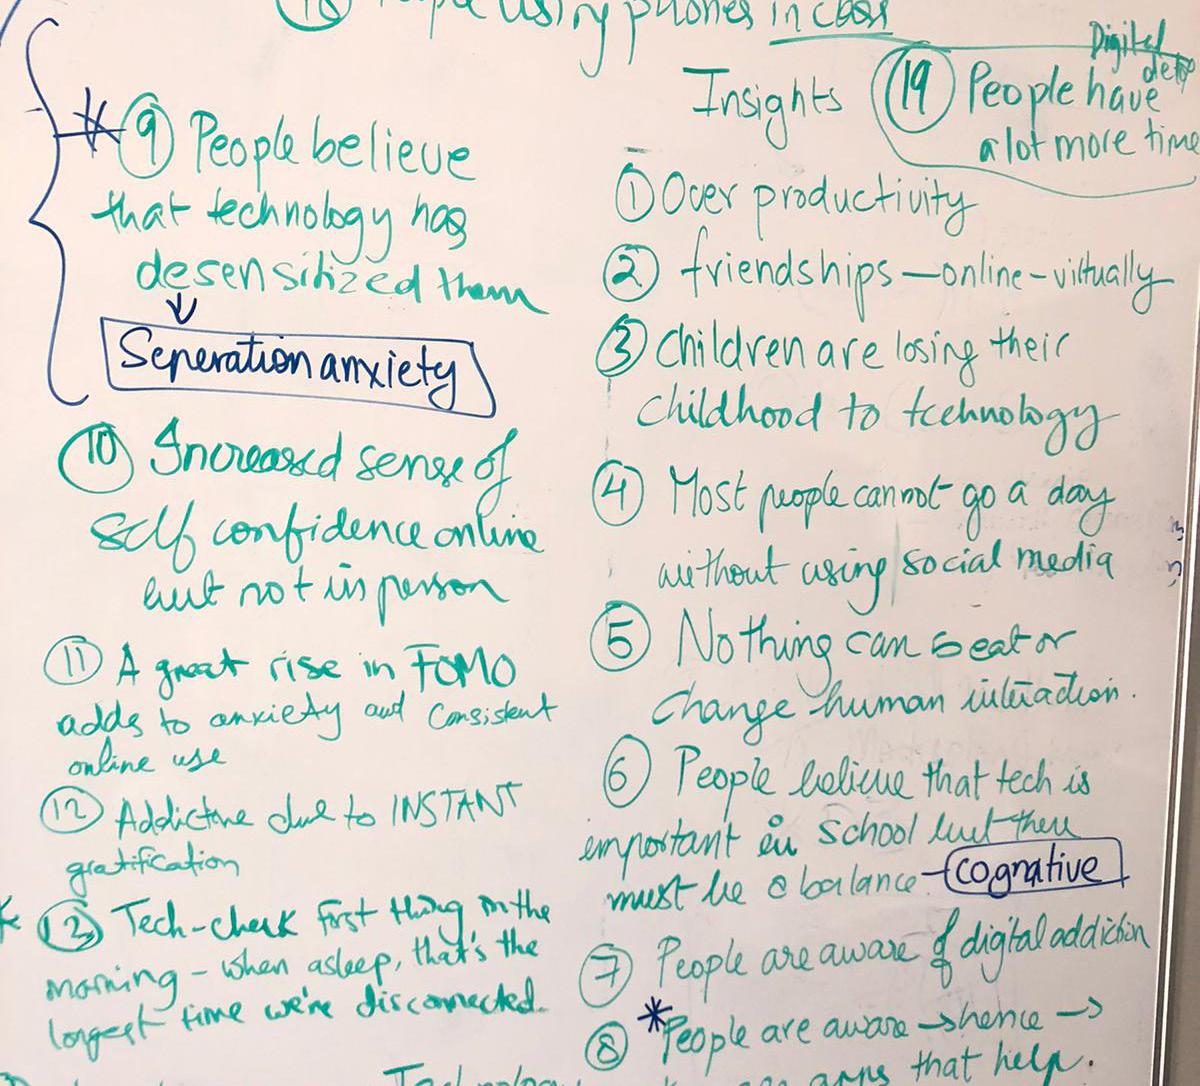 18 People using phones in class
Digital
detox
Insights
19 People have
a lot more time
1 Over productivity
2 friendships — online - virtually
3 Children are losing their
childhood to technology
4 Most people cannot go a day
without using social media
5 Nothing can beat or
change human interaction.
6 People believe that tech is
important in school but there
must be a balance - cognative
7 People are aware of digital addiction
8 * People are aware → hence →
that help.
* 9 People believe
that technology has
desensitized them
↓
Seperation anxiety
10 Increased sense of
self confidence online
but not in person
11 A great rise in FOMO
adds to anxiety and consistent
online use
12 Addictive due to INSTANT
gratification
* 13 Tech-check first thing in the
morning - when asleep, that's the
longest time we're disconnected.